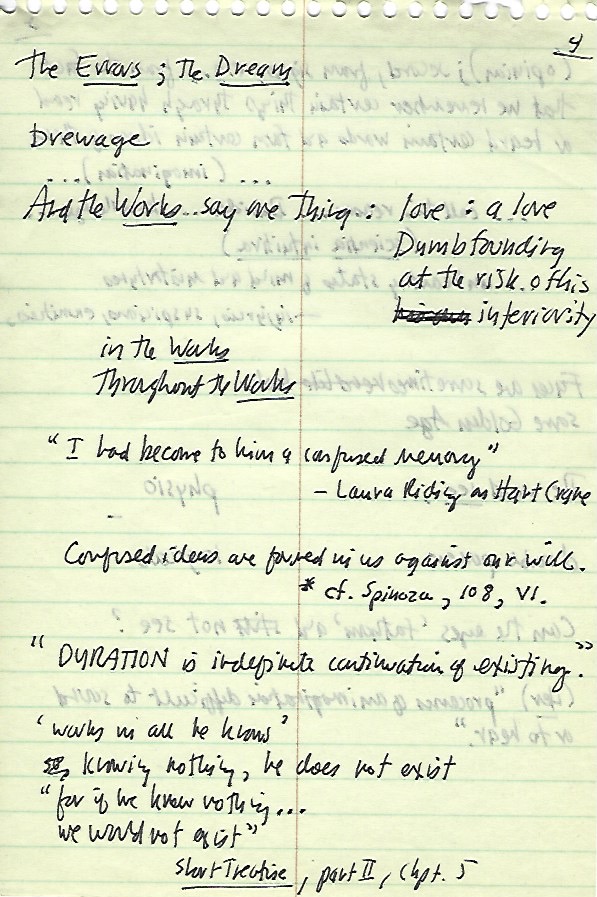 4
The Errors ; The Dream
Drewage
And the Works.. say one Thing : love : a love
Dumbfounding
at the risk of his
inferiority
in the Works
Throughout the Works
"I had become to him a confused memory"
– Laura Riding on Hart Crane
Confused ideas are formed in us against our will.
* cf. Spinoza, 108, VI.
"DURATION is indefinite continuation of existing."
'works in all he knows'
knowing nothing, he does not exist
"for if we know nothing...
we would not exist"
Short Treatise, part II, chpt. 5